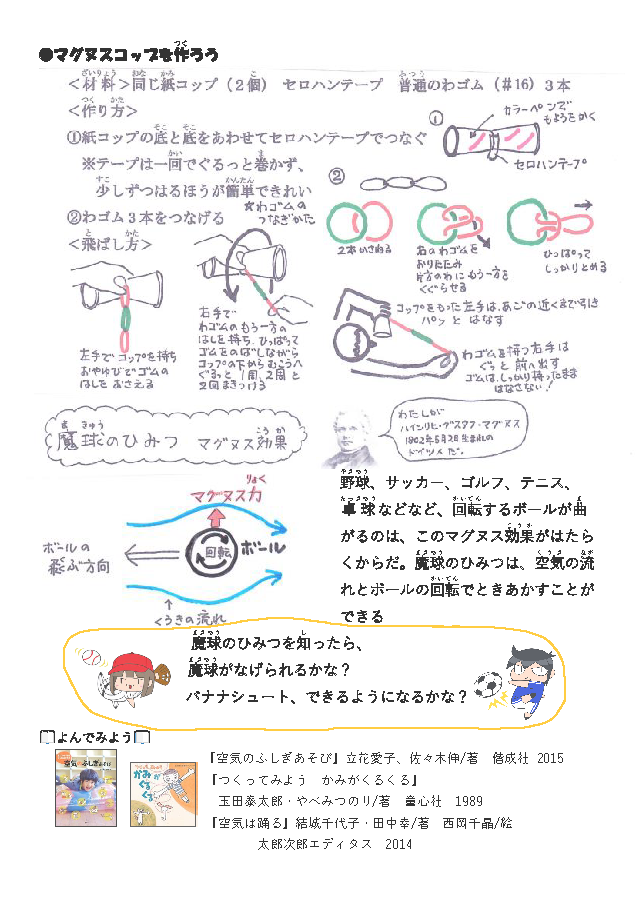 ●マグヌスコップを作ろう
＜材料＞同じ紙コップ（２個）　セロハンテープ　普通のわゴム（＃16）３本
＜作り方＞
①紙コップの底と底をあわせてセロハンテープでつなぐ
※テープは一回でぐるっと巻かず、
少しずつはるほうが簡単できれい
②わゴム３本をつなげる
＜飛ばし方＞
①
カラーペンで
もようをかく
セロハンテープ
②
☆わゴムの
つなぎかた
2本かさねる
右のわゴムを
おりたたみ
片方のわにもう一方を
くぐらせる
ひっぱって
しっかりとめる
左手でコップを持ち
おやゆびでゴムの
はしをおさえる
右手で
わゴムのもう一方の
はしを持ち、ひっぱって
ゴムをのばしながら
コップの下からむこうへ
ぐるっと1周、2周と
2回まきつける
コップをもった左手は、あごの近くまで引き
パッとはなす
わゴムを持つ右手は
ぐっと前へ出す
ゴムは、しっかり持ったまま
はなさない！
魔球のひみつ　マグヌス効果
わたしが
ハインリヒ・グスタフ・マグヌス
1802年5月2日生まれの
ドイツ人だ。
マグヌス力
回転
ボール
ボールの
飛ぶ方向
くうきの流れ
野球、サッカー、ゴルフ、テニス、
卓球などなど、回転するボールが曲
がるのは、このマグヌス効果がはたら
くからだ。魔球のひみつは、空気の流
れとボールの回転でときあかすことが
できる
魔球のひみつを知ったら、
魔球がなげられるかな？
バナナシュート、できるようになるかな？
よんでみよう
『空気のふしぎあそび』立花愛子、佐々木伸/著　偕成社　2015
『つくってみよう　かみがくるくる』
玉田泰太郎・やべみつのり/著　童心社　1989
『空気は踊る』結城千代子・田中幸/著　西岡千晶/絵
太郎次郎エディタス　2014